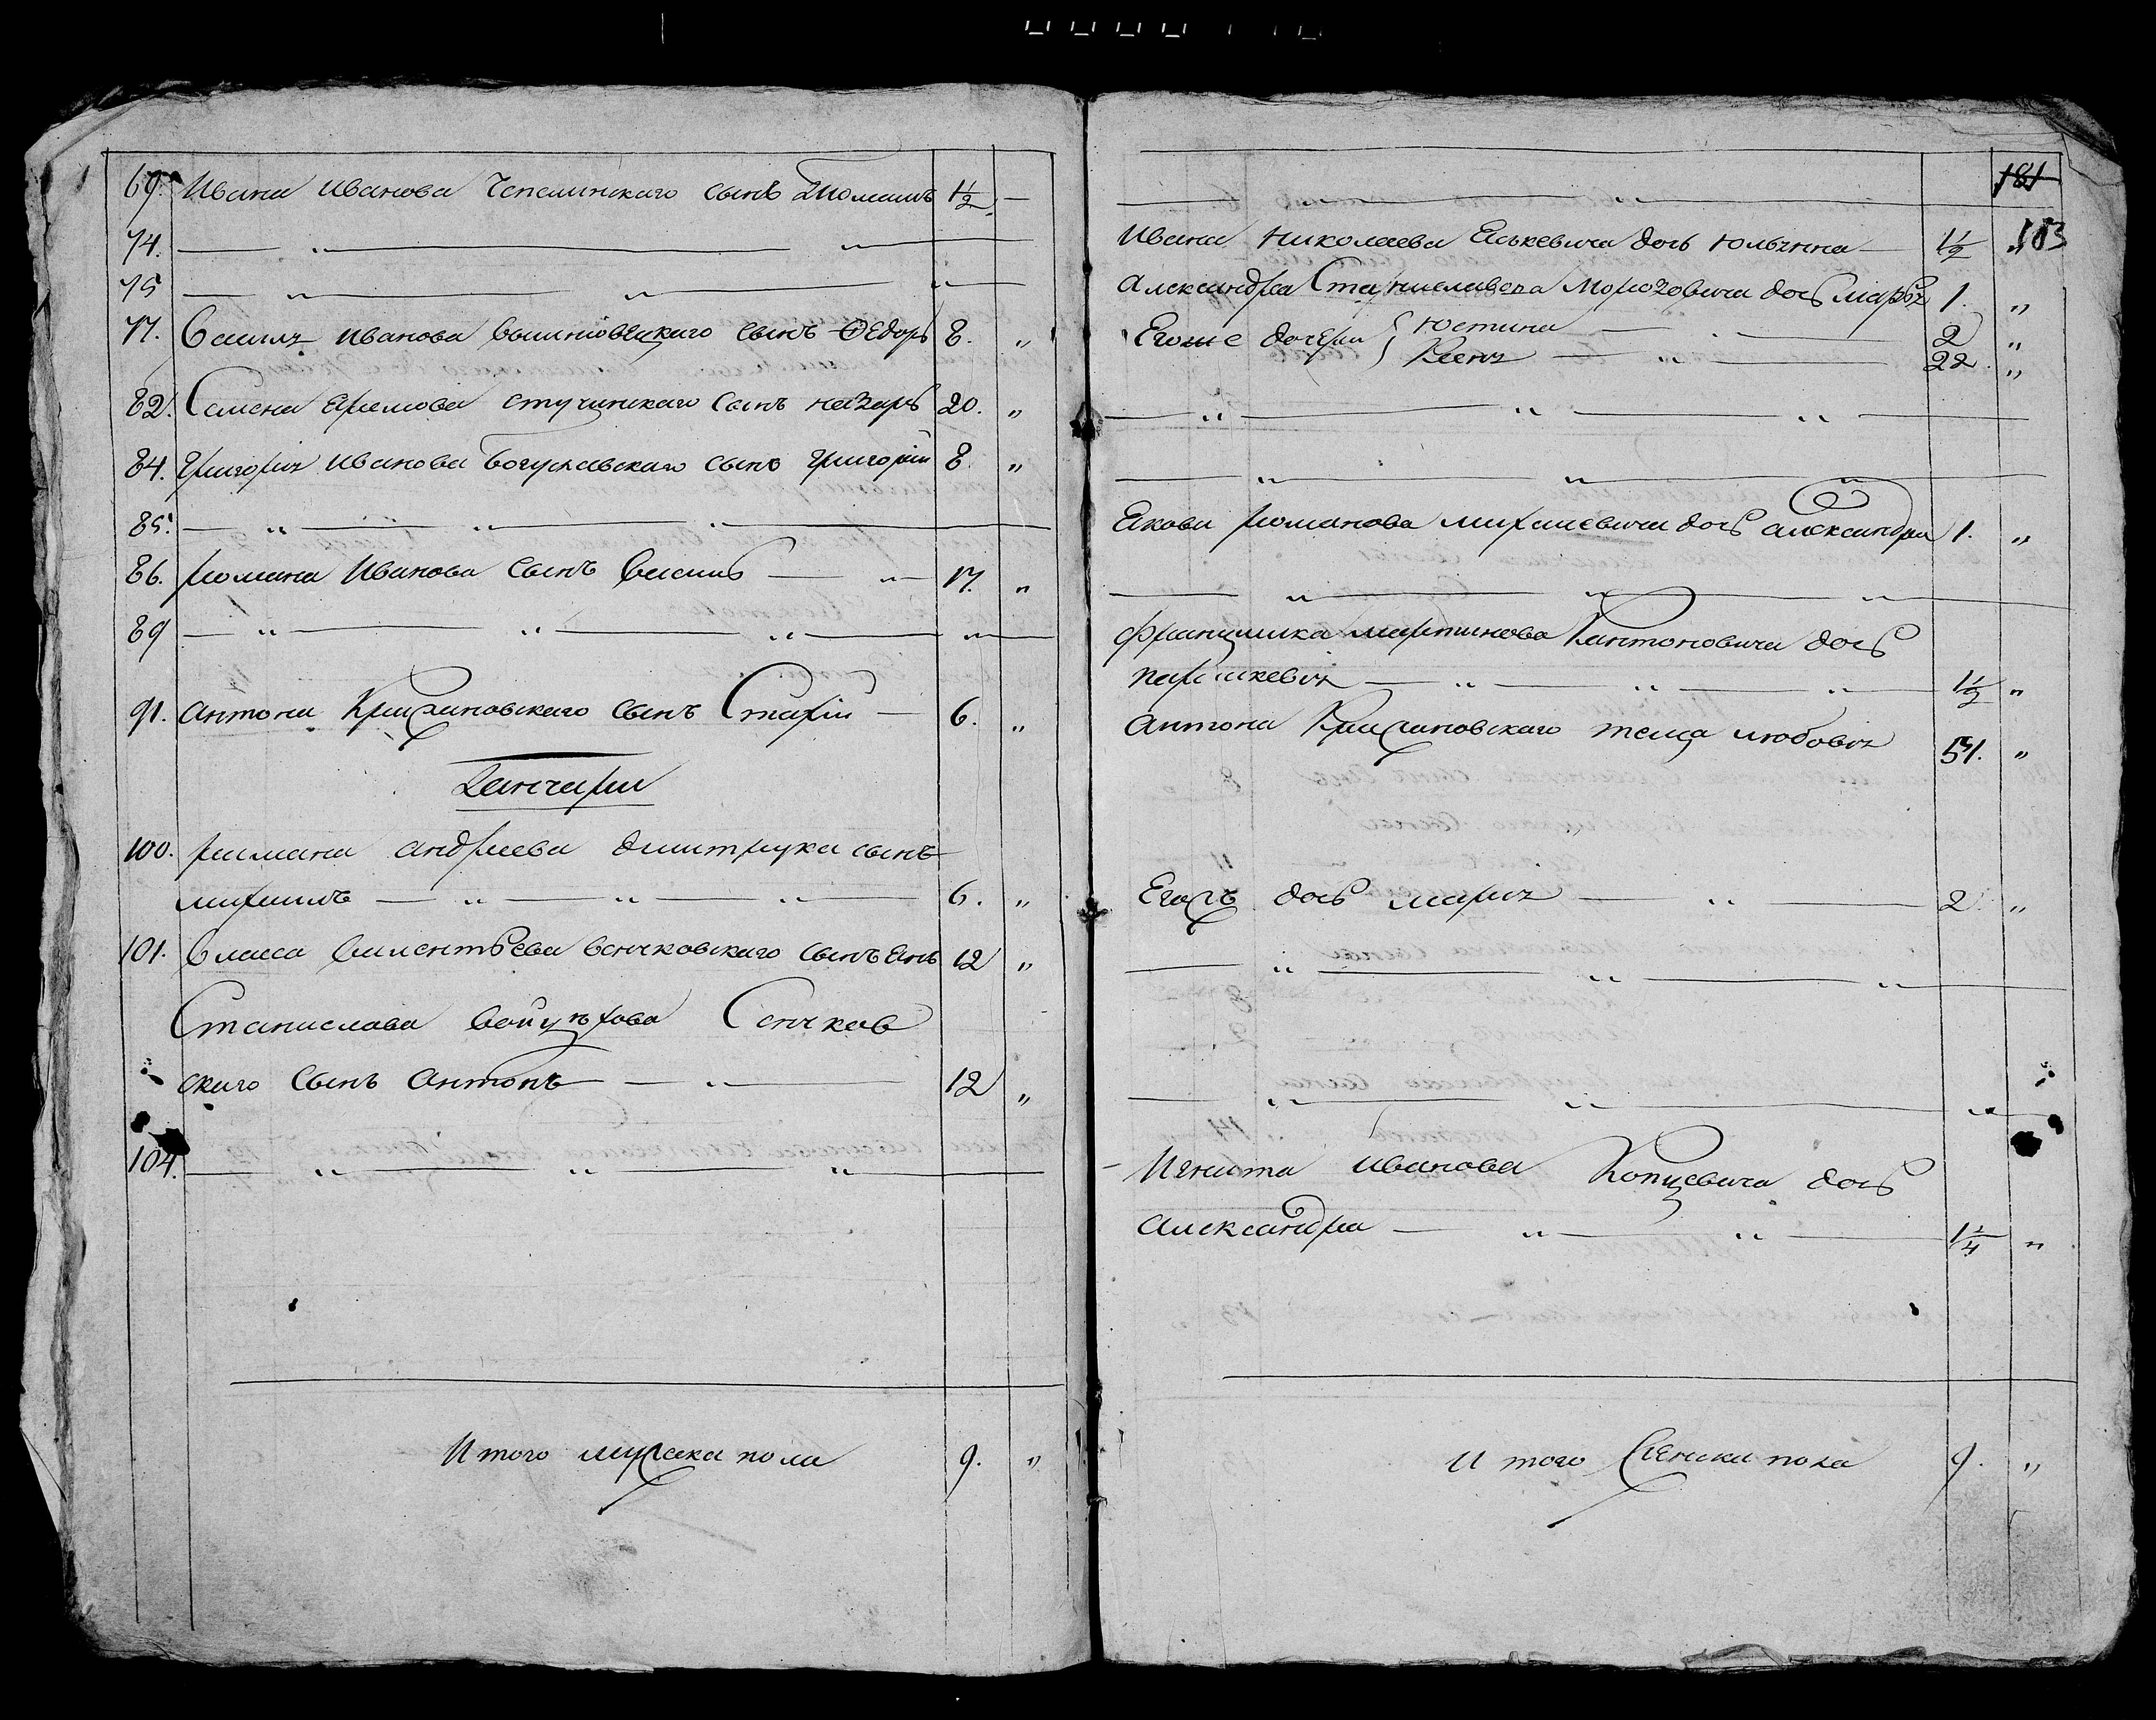 69. Ивана Иванова Чепелинскаго сынъ Томашъ 1½ —
74. — „ — „ —
75 — „ — „ — „ —
77. Василя Иванова Вашновецкаго сынъ Ѳедоръ 8. „
82. Семена Яремова Стучинскаго сынъ Назаръ 20. „
84. Григорія Иванова Богуславскаго сынъ Григорій 8. „
85. — „ — „ — „ —
86. Романа Иванова сынъ Василь — „ — 17. „
89 — „ — „ — „ — „ —
91. Антона Кришановскаго сынъ Стахій — 6. „
Ганчари
100. Романа Андреева Дмитрука сынъ
Михаилъ — „ — „ — „ — 6. „
101. Власа Силентьева Сенчковскаго сынъ Янъ 12 „
Станислава Войцехова Сенчков
скаго сынъ Антонъ — „ — 12 „
104. — „ — „ — „ —
Итого мужска пола 9. „
181
— „ — „ —
Ивана Николаева Яцкевича дочь Юльянна — 1½ „ 183
Александра Станиславова Морозовича дочь Марья 1. „
Егоже дочери { Юстина — „ — 2 „
Ксеня — „ — 22. „
— „ — „ — „ —
— „ — „ — „ —
Якова Романова Михалевича дочь Александра 1. „
— „ — „ — „ —
Францишка Мартинова Кантоновича дочь
Параскевія — „ — „ — „ — 1½ „
Антона Кришановскаго теща Любовія 51. „
Егожъ дочь Марія — „ — 2 „
— „ — „ — „ —
— „ — „ — „ —
Игната Иванова Копцевича дочь
Александра — „ — „ — 1¼ „
Итого женска пола 9. „